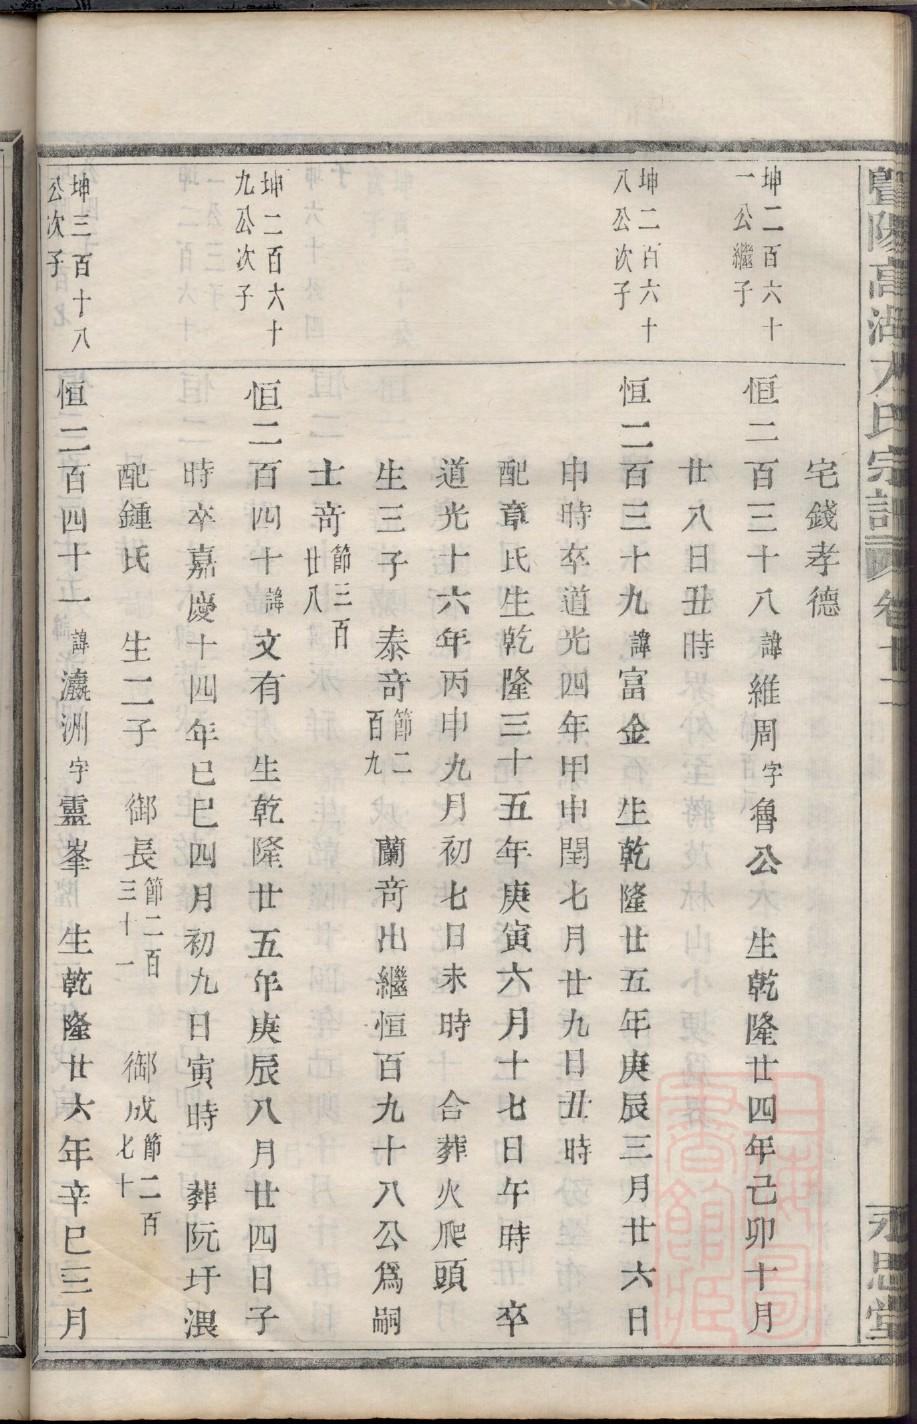 暨陽高湖人氏宗譜 卷十二
永思堂
宅錢孝德
坤二百六十
一公繼子
恒二百三十八諱維周字魯公 生乾隆廿四年己卯十月
廿八日丑時
坤二百六十
八公次子
恒二百三十九諱富金 生乾隆廿五年庚辰三月廿六日
申時卒道光四年甲申閏七月廿九日丑時
配章氏生乾隆三十五年庚寅六月十七日午時 卒
道光十六年丙申九月初七日未時 合葬火爬頭
生三子 泰奇節二百九 蘭奇出繼恒百九十八公爲嗣
士奇節三百廿八
坤二百六十
九公次子
恒二百四十諱文有 生乾隆廿五年庚辰八月廿四日子
時卒嘉慶十四年巳巳四月初九日寅時 葬阮圩渨
配鍾氏 生二子 御長節二百三十一 御成節二百七十
坤三百十八
公次子
恒二百四十一諱瀛洲字靈峯 生乾隆廿六年辛巳三月